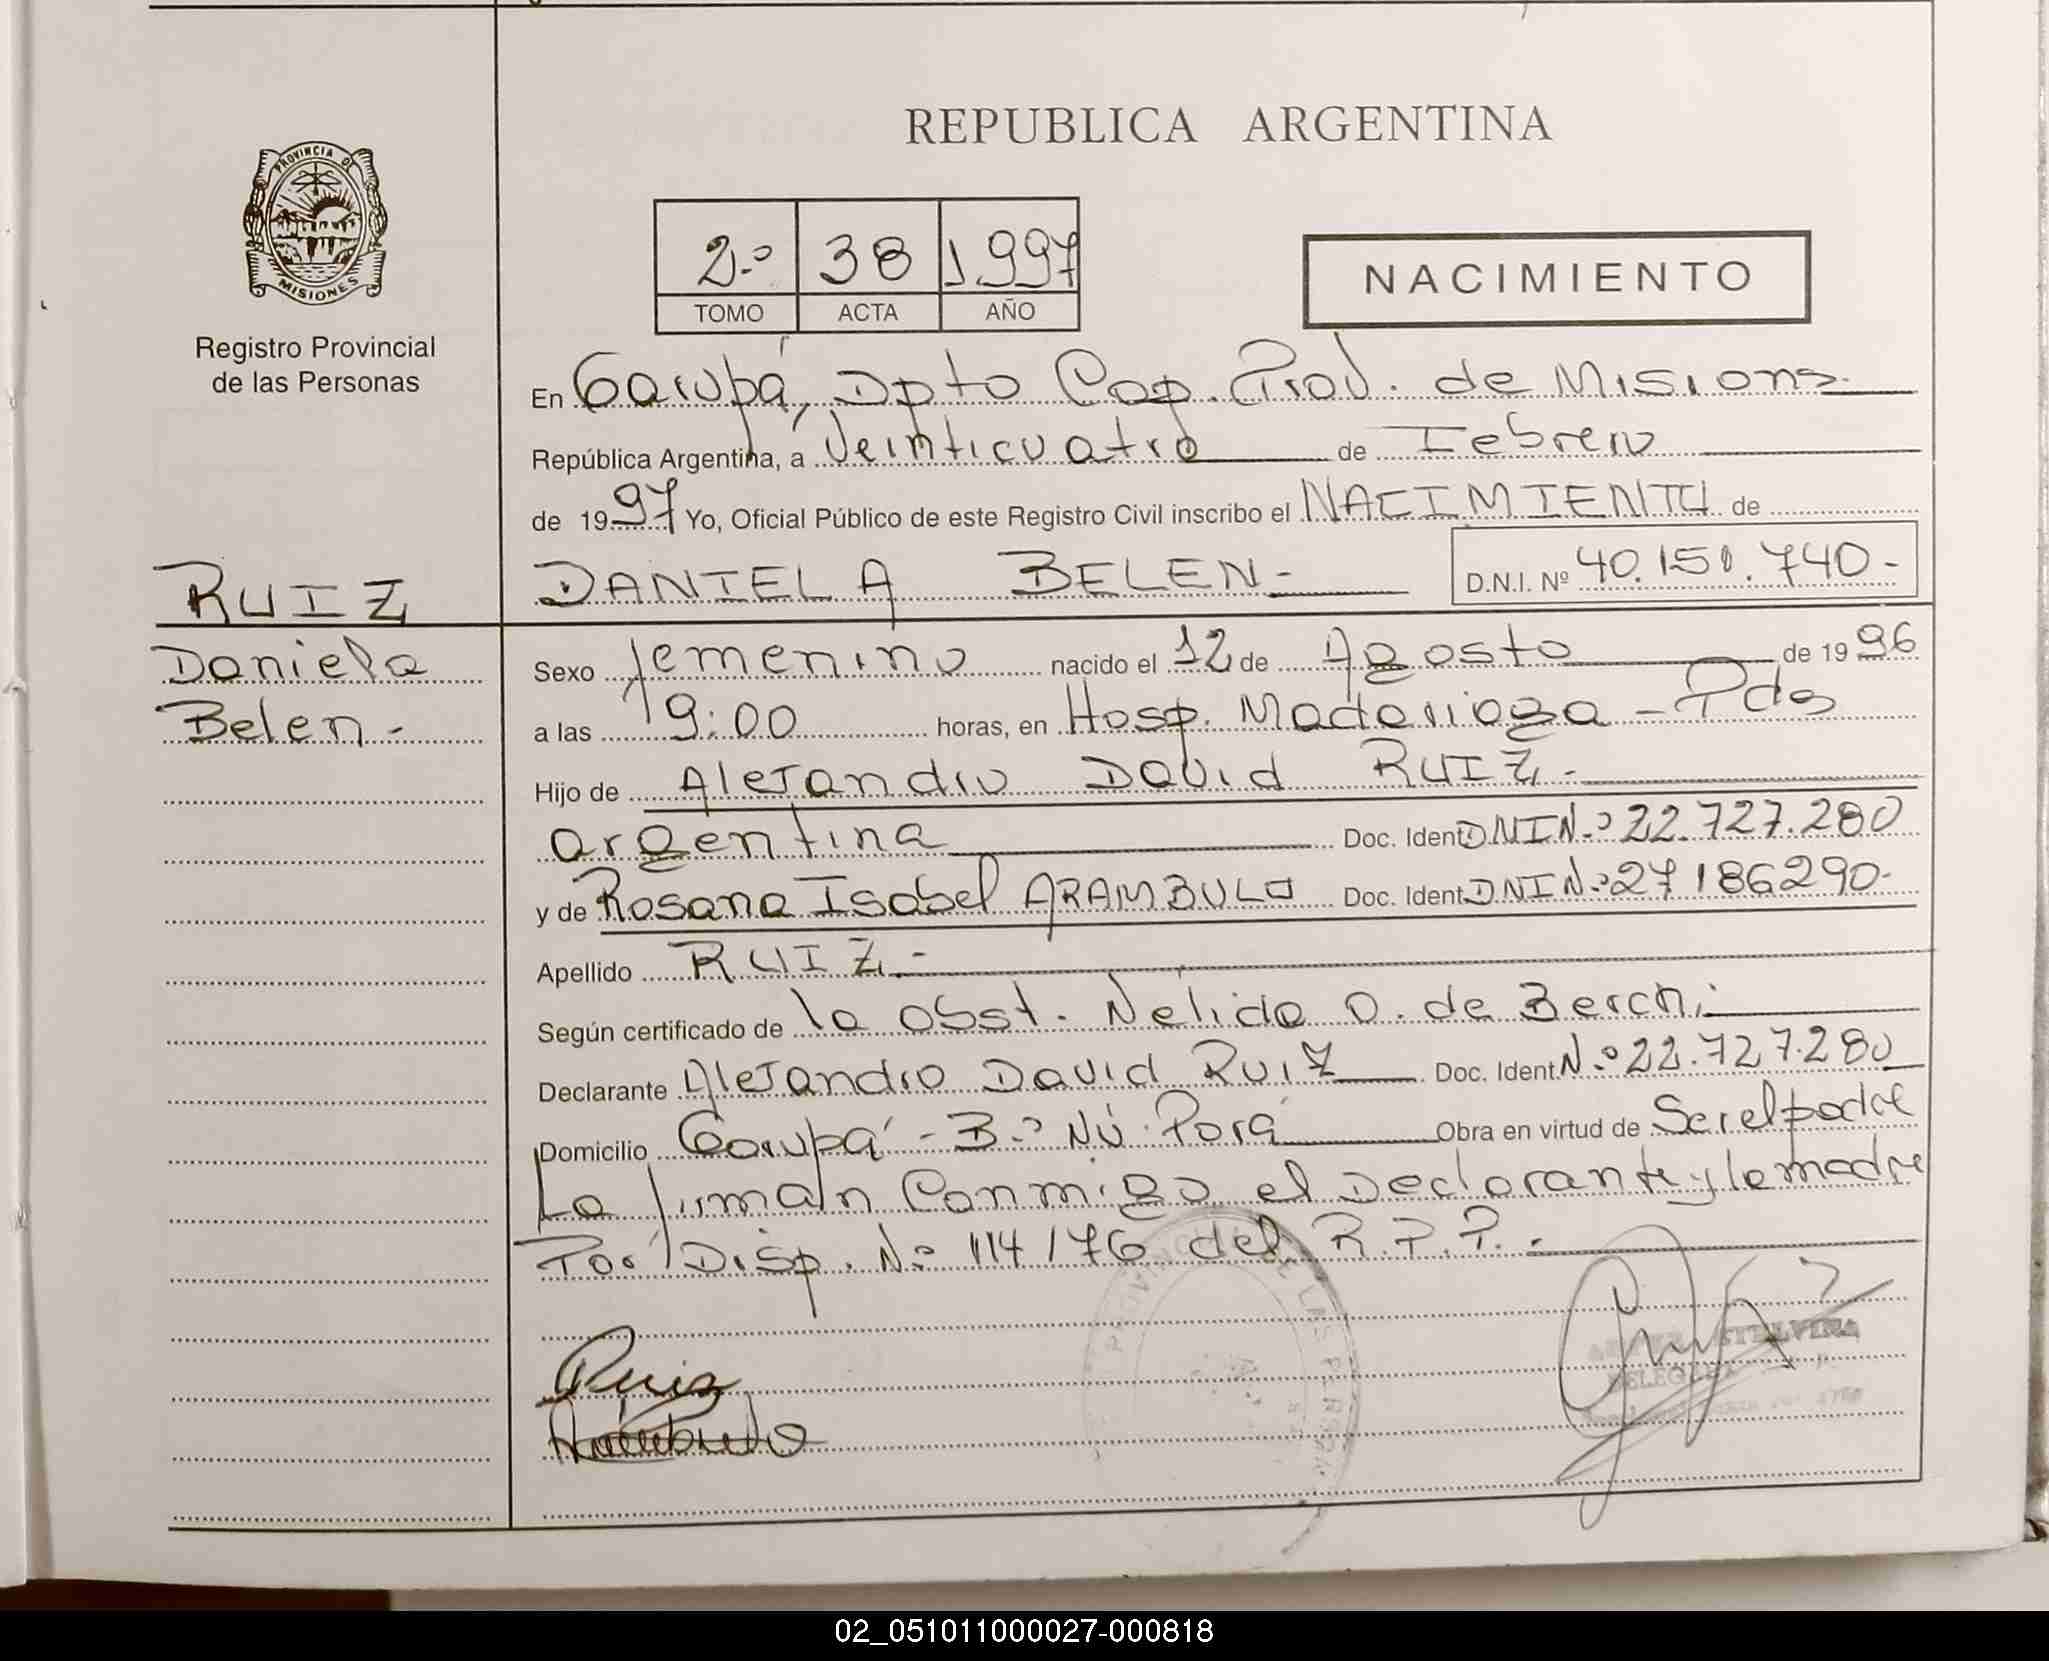 REPUBLICA ARGENTINA
PROVINCIA DE
MISIONES
Registro Provincial
de las Personas
2.º 38 1.997
TOMO ACTA AÑO
NACIMIENTO
En Garupá, Dpto Cap. Prov. de Misiones
República Argentina, a Veinticuatro de Febrero
de 1997 Yo, Oficial Público de este Registro Civil inscribo el NACIMIENTO de
RUIZ
Daniela
Belen.-
DANIELA BELEN.-
D.N.I. Nº 40.150.740-
Sexo femenino nacido el 12 de Agosto de 1996
a las 19:00 horas, en Hosp. Madariaga - Pdas
Hijo de Alejandro David RUIZ.-
argentina Doc. Ident. DNI N.º 22.727.280
y de Rosana Isabel ARAMBULO Doc. Ident. DNI N.º 27186290-
Apellido RUIZ.-
Según certificado de la obst. Nélida O. de Berchi
Declarante Alejandro David Ruiz Doc. Ident. N.º 22.727.280
Domicilio Garupá - B.º Ñú Porá Obra en virtud de Ser el padre
La firman Conmigo el Declarante y la madre
Por Disp. Nº 114/76 del R.P.P.-
Ruiz
02_051011000027-000818